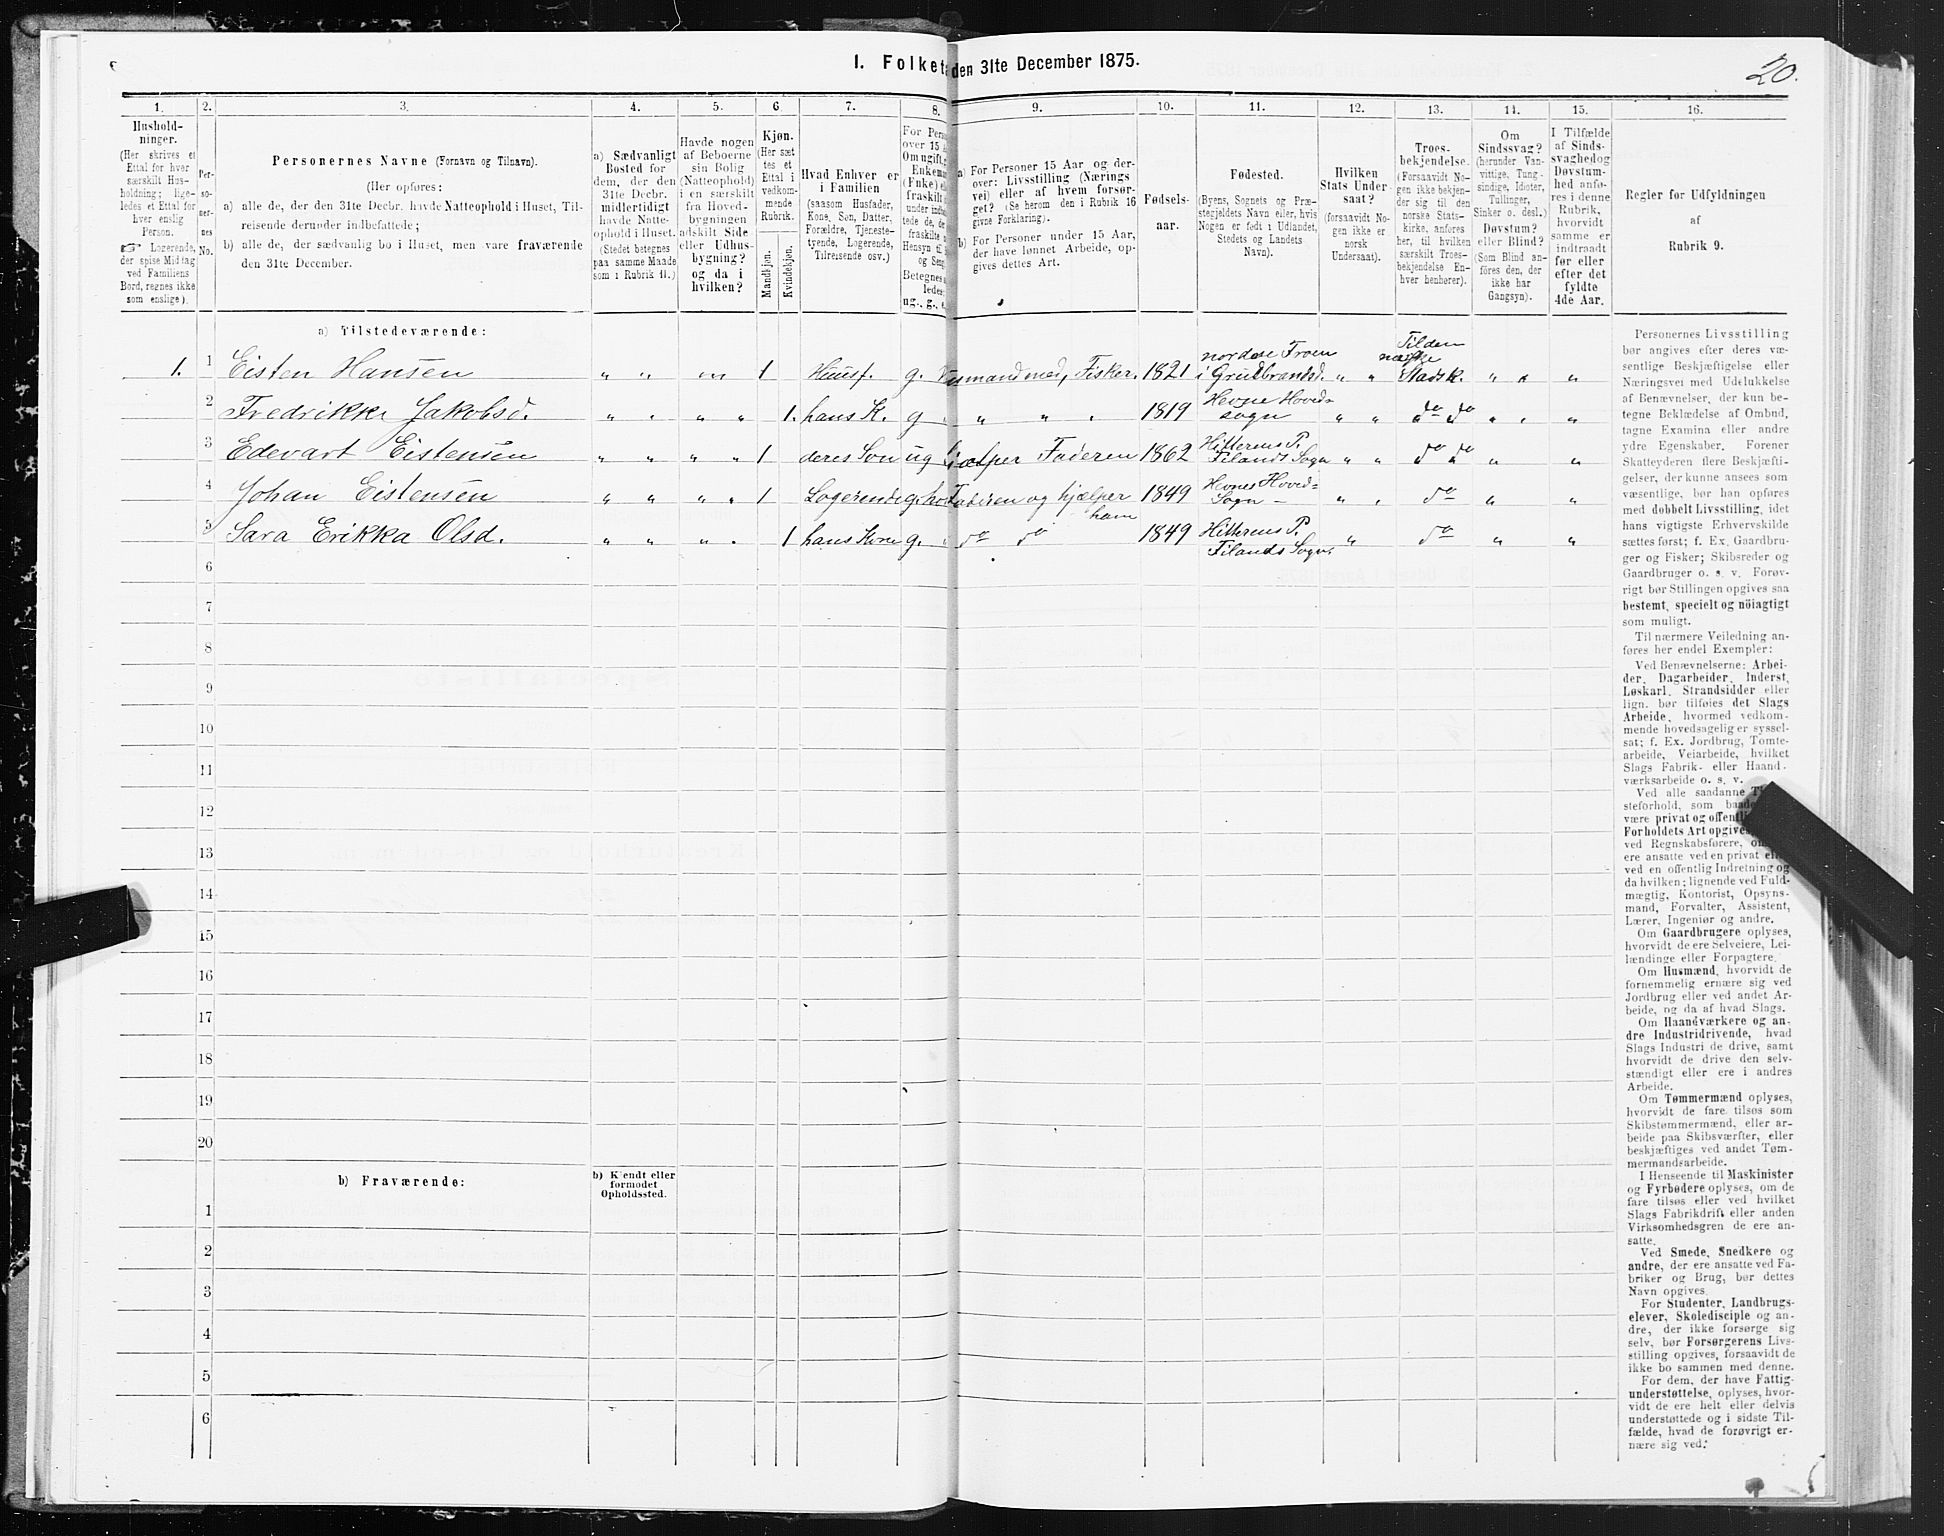 I. Folket den 31te December 1875.
20.
1. 2. 3. 4. 5. 6. 7. 8. 9. 10. 11. 12. 13. 14. 15. 16.
Hushold-
ninger.
(Her skrives et
Ettal for hver
særskilt Hus-
holdning; lige-
ledes et Ettal for
hver enslig
Person.
☞ Logerende,
der spise Middag
ved Familiens
Bord, regnes ikke
som enslige).
Per-
so-
ner-
nes
No.
Personernes Navne (Fornavn og Tilnavn).
(Her opføres:
a) alle de, der den 31te Decbr. havde Natteophold i Huset, Til-
reisende derunder indbefattede;
b) alle de, der sædvanlig bo i Huset, men vare fraværende
den 31te December.
a) Sædvanligt
Bosted for
dem, der den
31te Decbr.
midlertidigt
havde Natte-
ophold i Huset.
(Stedet betegnes
paa samme Maade
som i Rubrik 11.)
Havde nogen
af Beboerne
sin Bolig
(Natteophold)
i en særskilt
fra Hoved-
bygningen
adskilt Side
eller Udhus-
bygning?
og da i
hvilken?
Kjøn.
(Her sæt
tes et
Ettal i
vedkom-
mende
Rubrik.
Mandkjøn.
Kvindekjøn.
Hvad Enhver er
i Familien
(saasom Husfader,
Kone, Søn, Datter,
Forældre, Tjeneste-
tyende, Logerende,
Tilreisende osv.)
For Pers
over 15 A
Om ugift,
Enkema
(Enke) el
fraskilt
under indb
tede de,
fraskilte
Hensyn ti
og Sen
Betegnes
ledes:
ug., g., e
a) For Personer 15 Aar og der-
over: Livsstilling (Nærings
vei) eller af hvem forsør-
get? (Se herom den i Rubrik 16
givne Forklaring).
b) For Personer under 15 Aar,
der have lønnet Arbeide, op-
gives dettes Art.
Fødsels-
aar.
Fødested.
(Byens, Sognets og Præ-
stegjeldets Navn eller, hvis
Nogen er født i Udlandet,
Stedets og Landets
Navn).
Hvilken
Stats Under-
saat?
(forsaavidt No-
gen ikke er
norsk
Undersaat).
Troes-
bekjendelse.
(Forsaavidt No-
gen ikke bekjen-
der sig til den
norske Stats-
kirke, anføres
her, til hvilken
særskilt Troes-
bekjendelse En-
hver henhører).
Om
Sindssvag?
(herunder Van-
vittige, Tung-
sindige, Idioter,
Tullinger,
Sinker o. desl.)
Døvstum?
eller Blind?
(Som Blind an-
føres den, der
ikke har
Gangsyn).
I Tilfælde
af Sinds-
svaghed og
Døvstum-
hed anfø-
res i denne
Rubrik,
hvorvidt
samme er
indtraadt
før eller
efter det
fyldte
4de Aar.
Regler for Udfyldningen
af
Rubrik 9.
a) Tilstedeværende:
1. 1 Eisten Hansen „ „ „ „ 1 Huusf. g. mand med, Fisker. 1821 nordre Froen i Grudbrandsd. „ „ Tilden norske Stadsk. „ „ „
2 Fredrikke Jakobsd. „ „ „ „ 1. hans K. g „ „ „ 1819 Hevne Hoved- sogn „ „ do do „ „ „
3 Edevart Eistensen „ „ „ „ 1 deres Søn ug hjælper Faderen 1862 Hitterens P. Filands Sogn „ „ do do „ „
4 Johan Eistensen „ „ „ „ 1 Logerende g. hos Faderen og hjælper ham 1849 Hevnes Hoved- Sogn – „ „ do „ „
5 Sara Erikka Olsd. „ „ „ „ 1 hans Kone g. „ do do 1849 Hitterens P. Filands Sogn „ do „ „
6
7
8
9
10
11
12
13
14
15
16
17
18
19
20
b) Fraværende:
b) Kjendt eller
formodet
Opholdssted.
1
2
3
4
5
6
Personernes Livsstilling
bør angives efter deres væ-
sentlige Beskjæftigelse eller
Næringsvei med Udelukkelse
af Benævnelser, der kun be-
tegne Beklædelse af Ombud,
tagne Examina eller andre
ydre Egenskaber. Forener
Skatteyderen flere Beskjæfti-
gelser, der kunne ansees som
væsentlige, bør han opføres
med dobbelt Livsstilling, idet
hans vigtigste Erhvervskilde
sættes først; f. Ex. Gaardbru-
ger og Fisker; Skibsreder og
Gaardbruger o. s. v. Forøv-
rigt bør Stillingen opgives saa
bestemt, specielt og nöiagtigt
som muligt.
Til nærmere Veiledning an-
føres her endel Exempler:
Ved Benævnelserne: Arbei-
der, Dagarbeider, Inderst,
Løskarl, Strandsidder eller
lign. bør tilføies det Slags
Arbeide, hvormed vedkom-
mende hovedsagelig er syssel-
sat; f. Ex. Jordbrug, Tomte-
arbeide, Veiarbeide, hvilket
Slags Fabrik- eller Haand-
værksarbeide o. s. v.
Ved alle saadanne
steforhold, som baade
være privat og offentl
Forholdets Art opgives
ved Regnskabsførere,
ere ansatte ved en privat eller
ved en offentlig Indretning og
da hvilken; lignende ved Fuld-
mægtig, Kontorist, Opsyns-
mand, Forvalter, Assistent,
Lærer, Ingeniør og andre.
Om Gaardbrugere oplyses,
hvorvidt de ere Selveiere, Lei-
lændinge eller Forpagtere.
Om Husmænd, hvorvidt de
fornemmelig ernære sig ved
Jordbrug eller ved andet Ar-
beide, og da af hvad Slags.
Om Haandværkere og an-
dre Industridrivende, hvad
Slags Industri de drive, samt
hvorvidt de drive den selv-
stændigt eller ere i andres
Arbeide.
Om Tømmermænd oplyses,
hvorvidt de fare tilsøs som
Skibstømmermænd, eller ar-
beide paa Skibsværfter, eller
beskjæftiges ved andet Tøm-
mermandsarbeide.
I Henseende til Maskinister
og Fyrbødere oplyses, om de
fare tilsøs eller ved hvilket
Slags Fabrikdrift eller anden
Virksomhedsgren de ere an-
satte.
Ved Smede, Snedkere og
andre, der ere ansatte ved Fa-
briker og Brug, bør dettes
Navn opgives.
For Studenter, Landbrugs-
elever, Skoledisciple og an-
dre, der ikke forsørge sig
selv, bør Forsørgerens Livs-
stilling opgives, forsaavidt de
ikke bo sammen med denne.
For dem, der have Fattig-
understøttelse, oplyses, hvor-
vidt de ere helt eller delvis
understøttede og i sidste Til-
fælde, hvad de forøvrigt er-
nære sig ved.